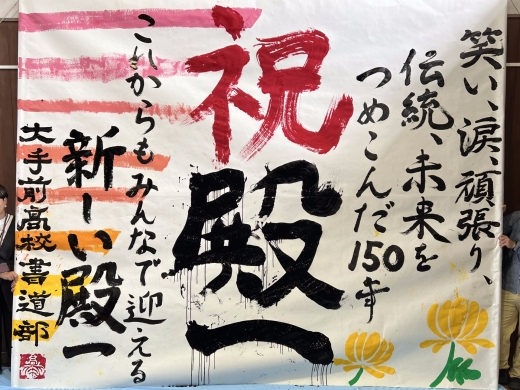 笑い、涙、頑張り、
伝統、未来を
つめこんだ150年
祝
殿一
これからもみんなで迎える
新しい殿一
大手前高校書道部